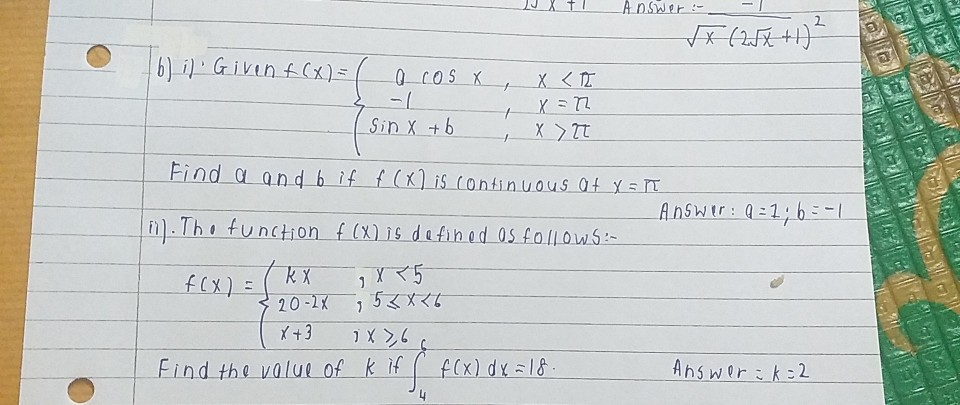 Answer :- -1
√x (2√x +1)²
b) i). Given f(x) = { a cos x , x < π
-1 , x = π
sin x + b , x > π
Find a and b if f(x) is continuous at x = π
Answer: a=1; b=-1
ii). The function f(x) is defined as follows:-
f(x) = { kx , x < 5
20-2x , 5 ≤ x < 6
x+3 , x ≥ 6
Find the value of k if ∫₄⁶ f(x) dx = 18.
Answer = k = 2